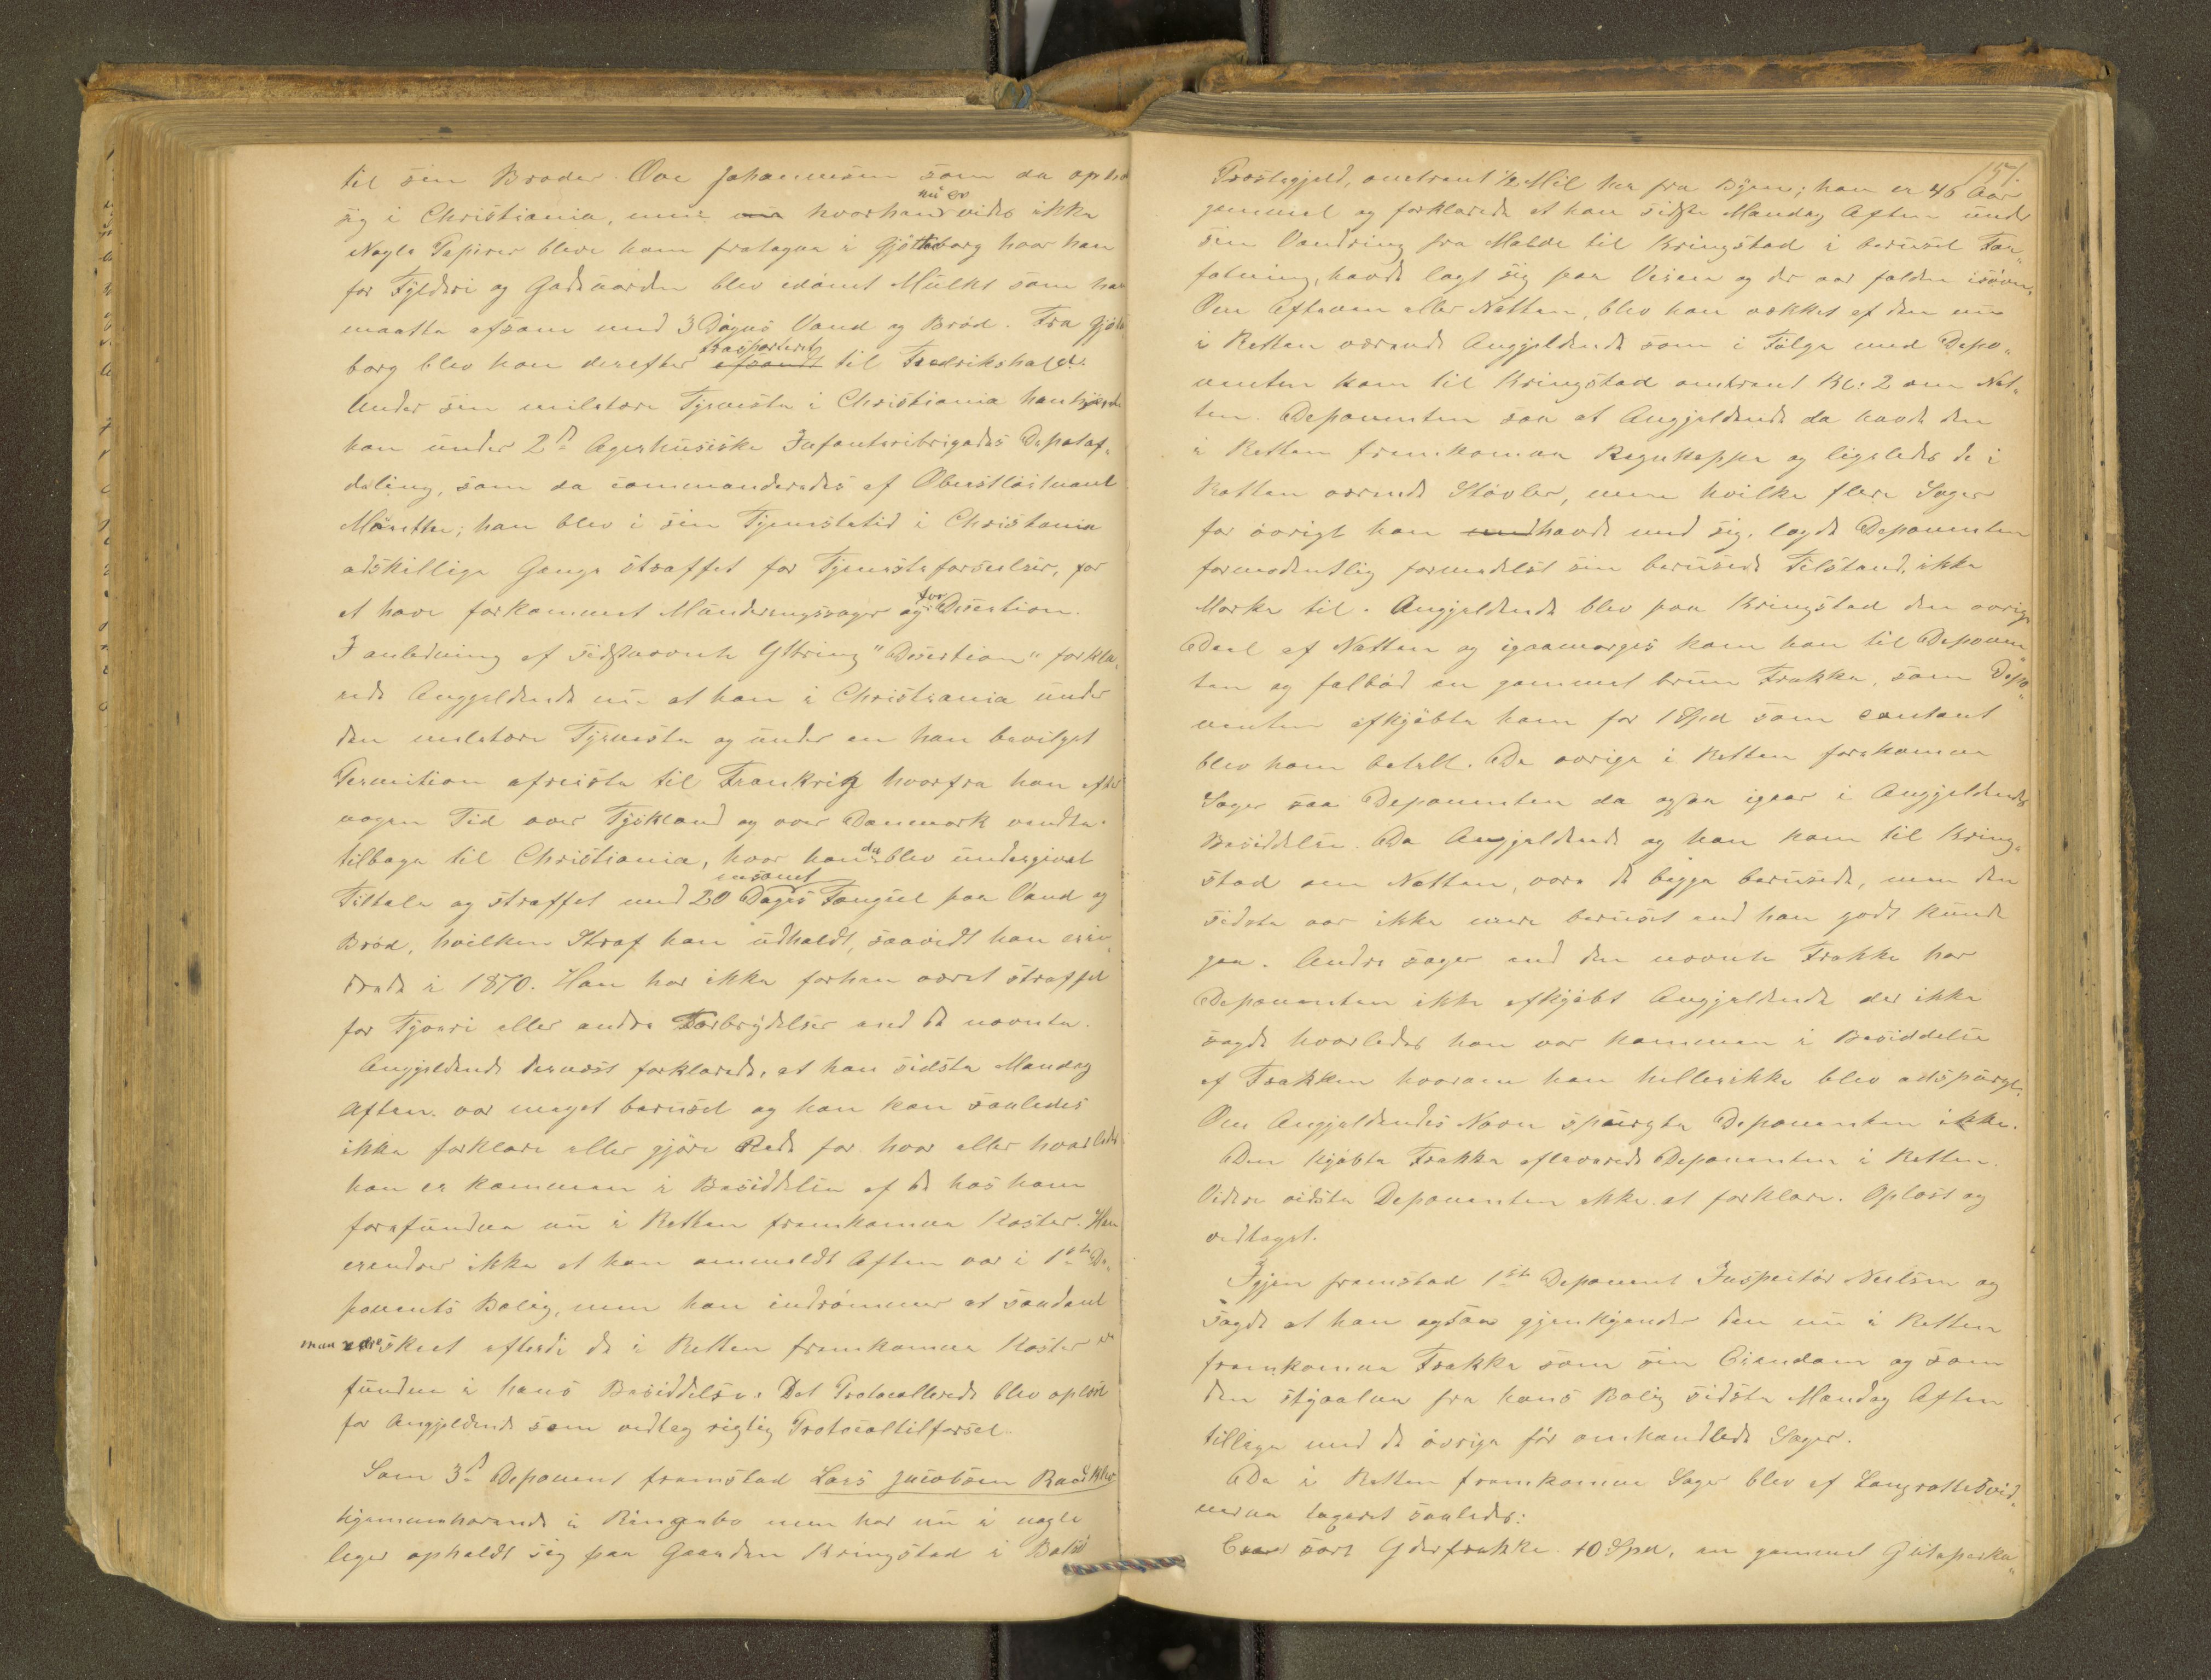 til sin Broder Ove Johannesen som da opho
sig i Christiania, men nu er hvorhan vides ikke
Nogle Papirer bleve ham fratagne i Gjøtteborg hvor han
for Fylderi og Gadeuorden blev idømt Mulkt som han
maatte afsone med 3 Dages Vand og Brød. Fra Gjøte
borg blev han derefter trasporteret til Fredrikshald.
Under sin militære Tjeneste i Christiania henhørte
han under 2d Agershusiske Infanteribrigades Depotaf„
deling, som da commanderedes af Oberstløitnant
Mønthe; han blev i sin Tjenstetid i Christania
adskillige Gange straffet for Tjenesteforseelser, for
at have forkommet Munderingssager og for Desertion.
I anledning af sidstnævnte Yttring "Desertion" forkla„
rede Angjeldende nu at han i Christiania under
den militære Tjeneste og under en ham bevilget
Permition afreiste til Frankrig hvorfra han efter
nogen Tid over Tydskland og over Danmark vendte
tilbage til Christiania, hvor han da blev undergivet
Tiltale og straffet med 20 Dages ensomt Fængsel paa Vand og
Brød, hvilken Straf han udholdt, saavidt han erin„
drede i 1870. Han har ikke forhen været straffet
for Tyveri eller andre Forbrydelser end de nævnte.
Angjeldende dernæst forklarede, at han sidste Mandag
Aften var meget beruset og han kan saaledes
ikke forklare eller gjøre Rede for hvor eller hvorledes
han er kommen i Besiddelse af de hos ham
forefundne nu i Retten fremkomne Koster. Han
erindrer ikke at han ommeldte Aften var i 1ste De„
ponents Bolig, men han indrømmer at saadant
maa være skeet efterdi de i Retten fremkomne Koster er
fundne i hans Besiddelse. Det Protocollerede blev oplæst
for Angjeldende som vedtog rigtig Protocoltilførsel.
Som 3d Deponent fremstod Lars Jacobsen Raad
hjemmehørende i Ringebo men har nu i nogle
leger opholdt sig paa Gaarden Kringstad i Bolsø
157.
Præstegjeld, omtrent 1/2 Mil her fra Byen; han er 46 Aar
gammel og forklarede at han sidste Mandag Aften under
sin Vandring fra Molde til Kringstad i beruset For„
fatning, havde lagt sig paa Veien og der var falden isøvn.
Om Aftenen eller Natten, blev han vækket af den nu
i Retten værende Angjeldende som i Følge med Depo„
nenten kom til Kringstad omtrent Kl: 2 om Nat„
ten. Deponenten saa at Angjeldende da havde den
i Retten fremkomne Regnkappe og ligeledes de i
Retten værende Støvler, men hvilke flere Sager
for øvrigt han havde med sig, lagde Deponenten
formodentlig formedelst sin berusede Tilstand, ikke
Mærke til. Angjeldende blev paa Kringstad den øvrige
Deel af Natten og igaarmorges kom han til Deponen„
ten og falbød en gammel brun Frakke, som Depo„
nenten afkjøbte ham for 1 Spd som contant
blev ham betalt. De øvrige i Retten forekomne
Sager saa Deponenten da ogsaa igaar i Angjeldendes
Besiddelse. Da Angjeldende og han kom til Kring„
stad om Natten, vare de begge berusede, men den
sidste var ikke mere beruset end han godt kunde
gaa. Andre sager end den nævnte Frakke har
Deponenten ikke afkjøbt Angjeldende der ikke
sagde hvorledes han var kommen i Besiddelse
af Frakken hvorom han hellerikke blev adspurgt.
Om Angjeldendes Navn spurgte Deponenten ikke.
Den kjøbte Frakke afleverede Deponenten i Retten.
Videre vidste Deponenten ikke at forklare. Oplæst og
vedtaget.
Igjen fremstod 1ste Deponent Inspectør Neilsen og
sagde at han ogsaa gjenkjender den nu i Retten
fremkomne Frakke som sin Eiendom og som
den stjaalne fra hans Bolig sidste Mandag Aften
tillige med de øvrige før omhandlede Sager.
De i Retten fremkomne Sager blev af Laugrettesvid„
nerne taxeret saaledes:
sort Yderfrakke 10 Spd, en gammel Gutaperka„